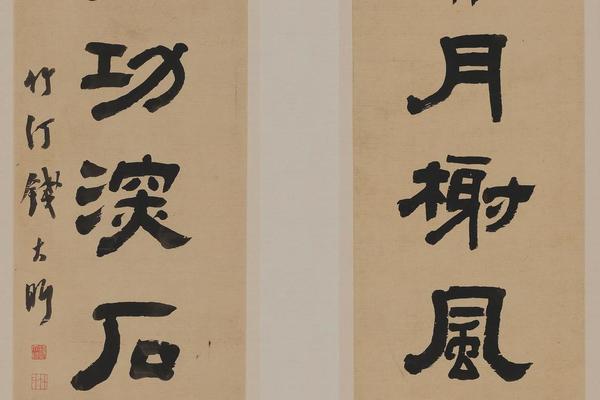 月榭風
功深石
竹汀錢大昕